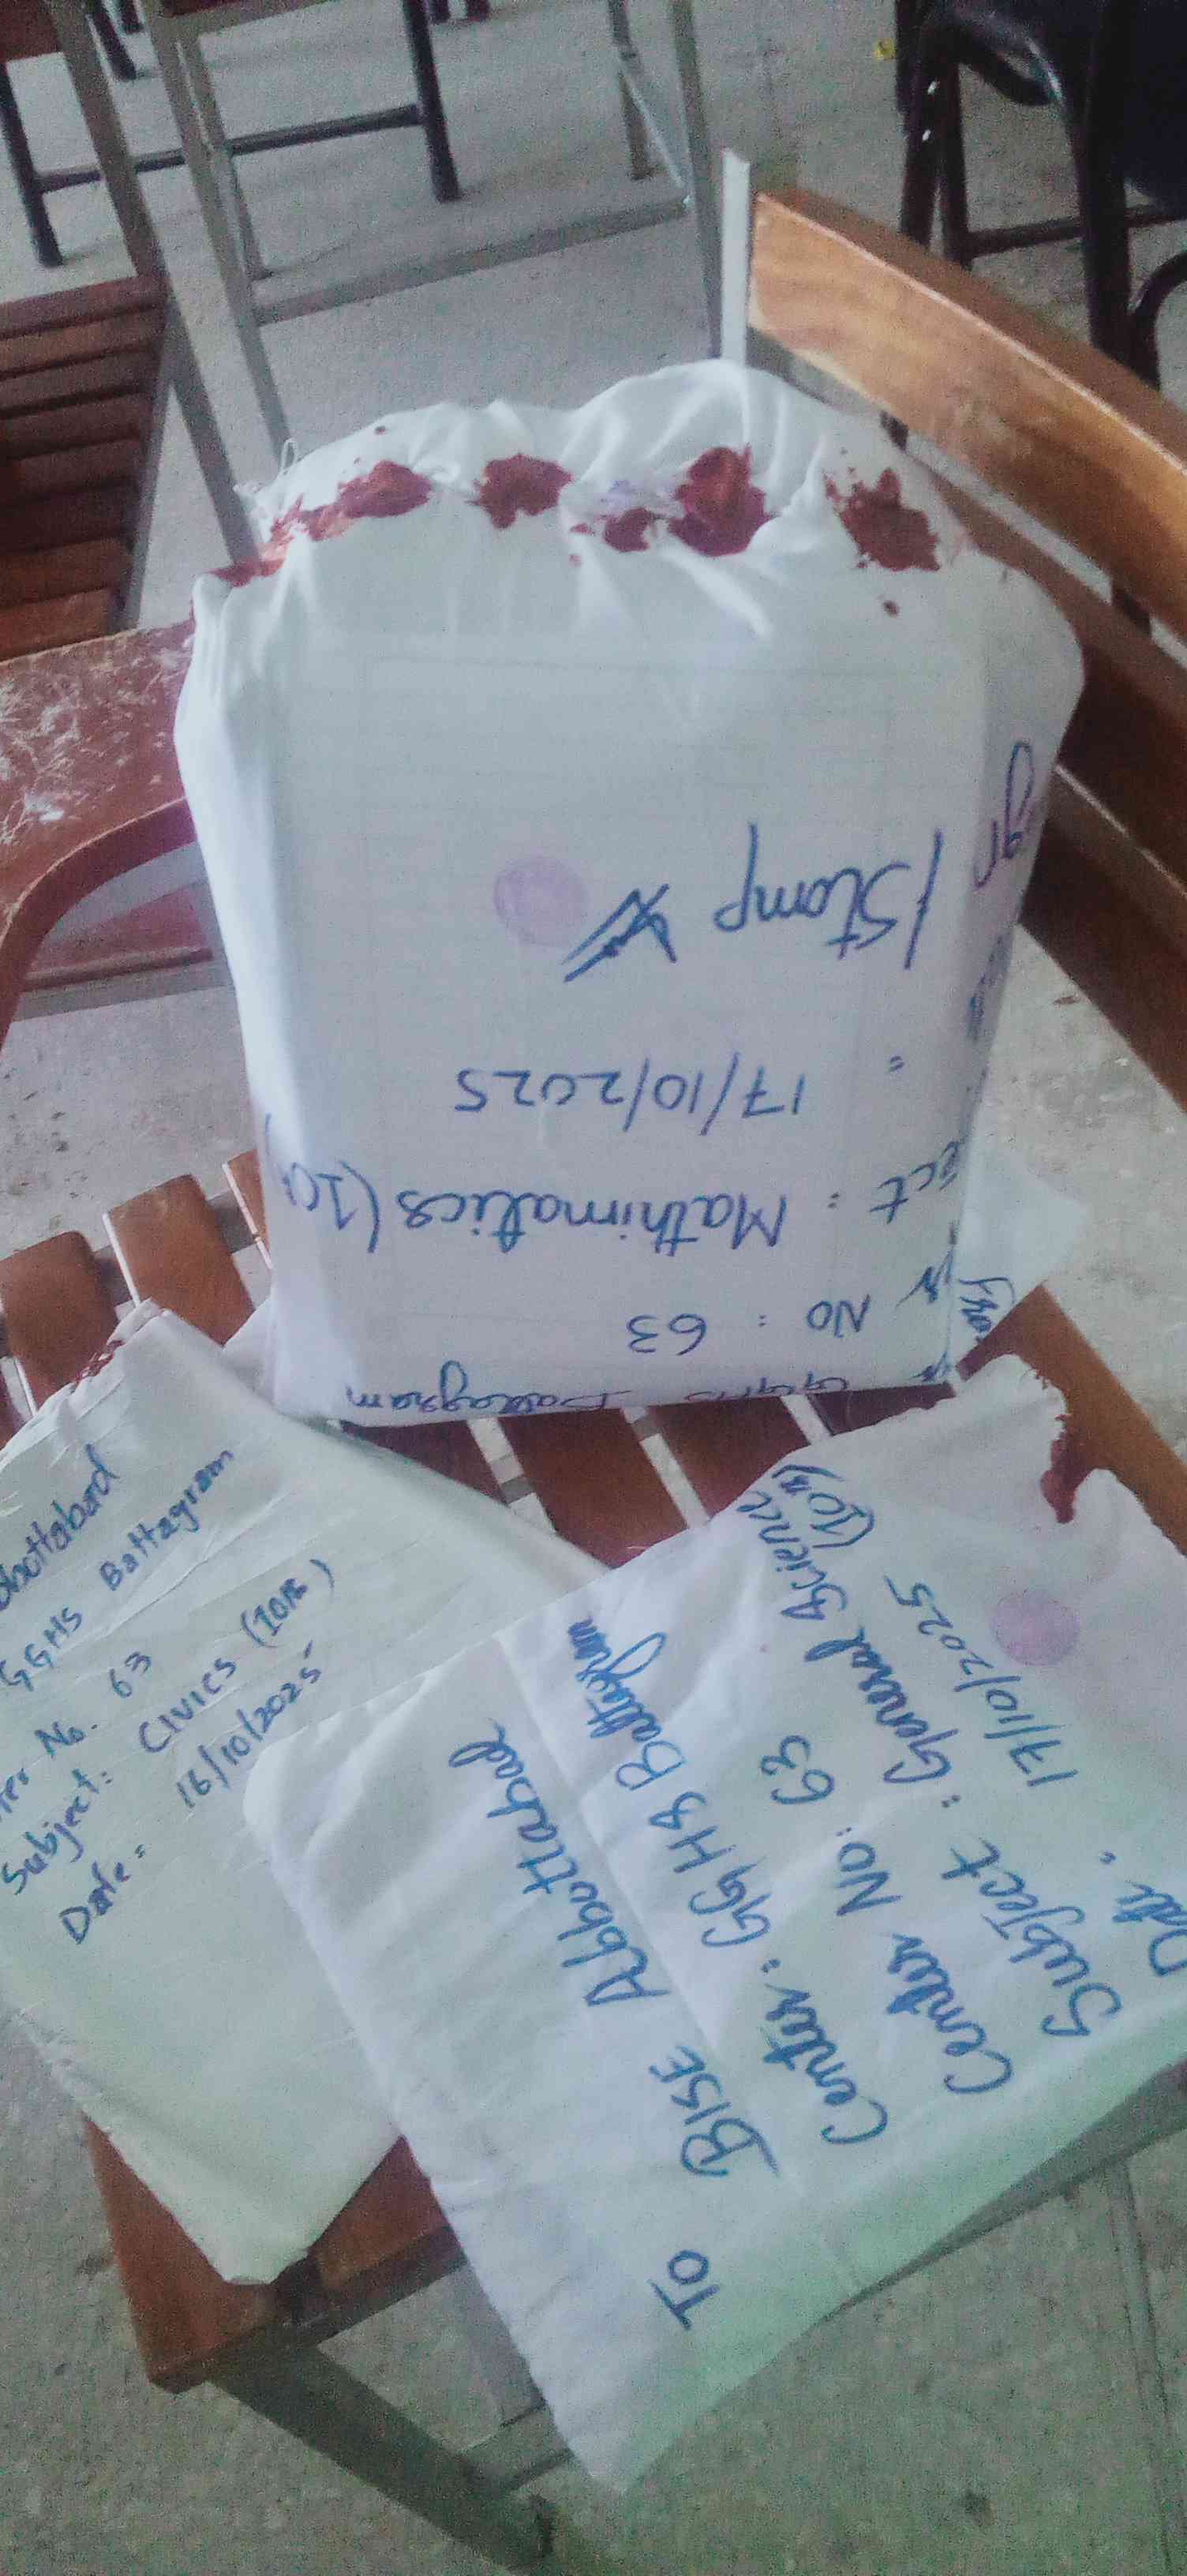 Battagram
NO : 63
ect : Mathimatics (10
= 17/10/2025
/Stamp
gn
GGHS Battagram
No. 63
Subject: CIVICS (10th)
Date = 16/10/2025
To
BISE Abbottabad
Center : GGHS Battagram
Center No: 63
Subject : General Science (10th)
17/10/2025